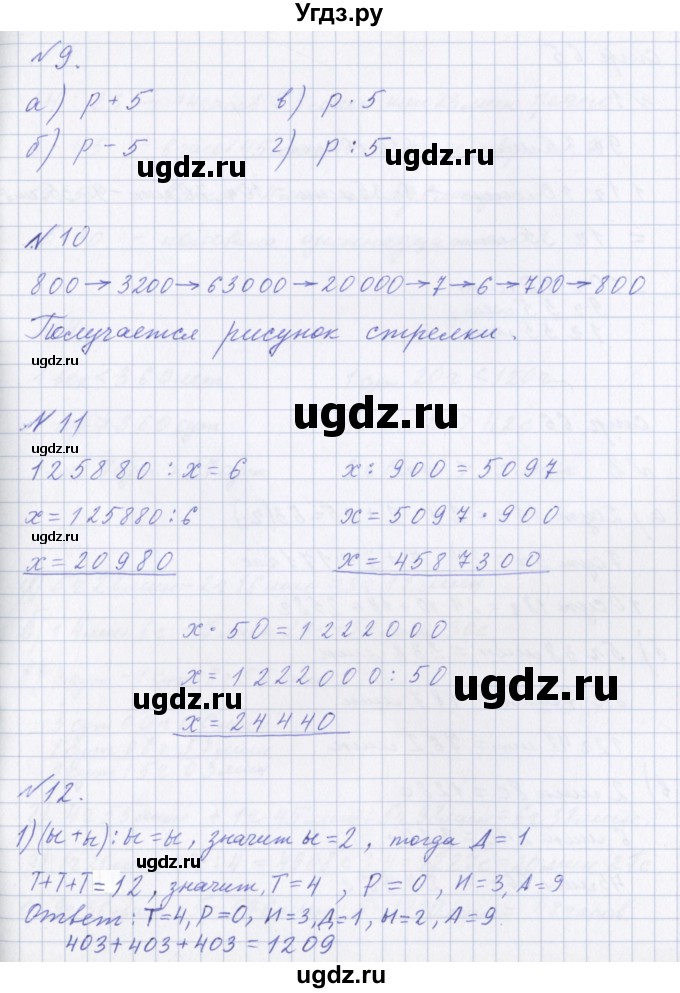 Угдз.ру
№9.
а) p + 5 в) p · 5
б) p − 5 г) p : 5
ugdz.ru ugdz.ru
№10
800→3200→63000→20000→7→6→700→800
Получается рисунок стрелки.
ugdz.ru
ugdz.ru
№11
ugdz.ru
125880 : x = 6 x : 900 = 5097
x = 125880 : 6 x = 5097 · 900
x = 20980 x = 4587300
x · 50 = 1222000
x = 1222000 : 50
ugdz.ru ugdz.ru
x = 24440
№12.
1) (ы + ы) : ы = ы, значит ы = 2, тогда Д = 1
ugdz.ru
Т+Т+Т = 12, значит, Т = 4, Р = 0, И = 3, А = 9
Ответ: Т=4, Р=0, И=3, Д=1, Ы=2, А=9.
403 + 403 + 403 = 1209
ugdz.ru